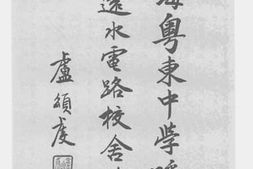 粵東中學
遠水電路校舍
盧頌虔